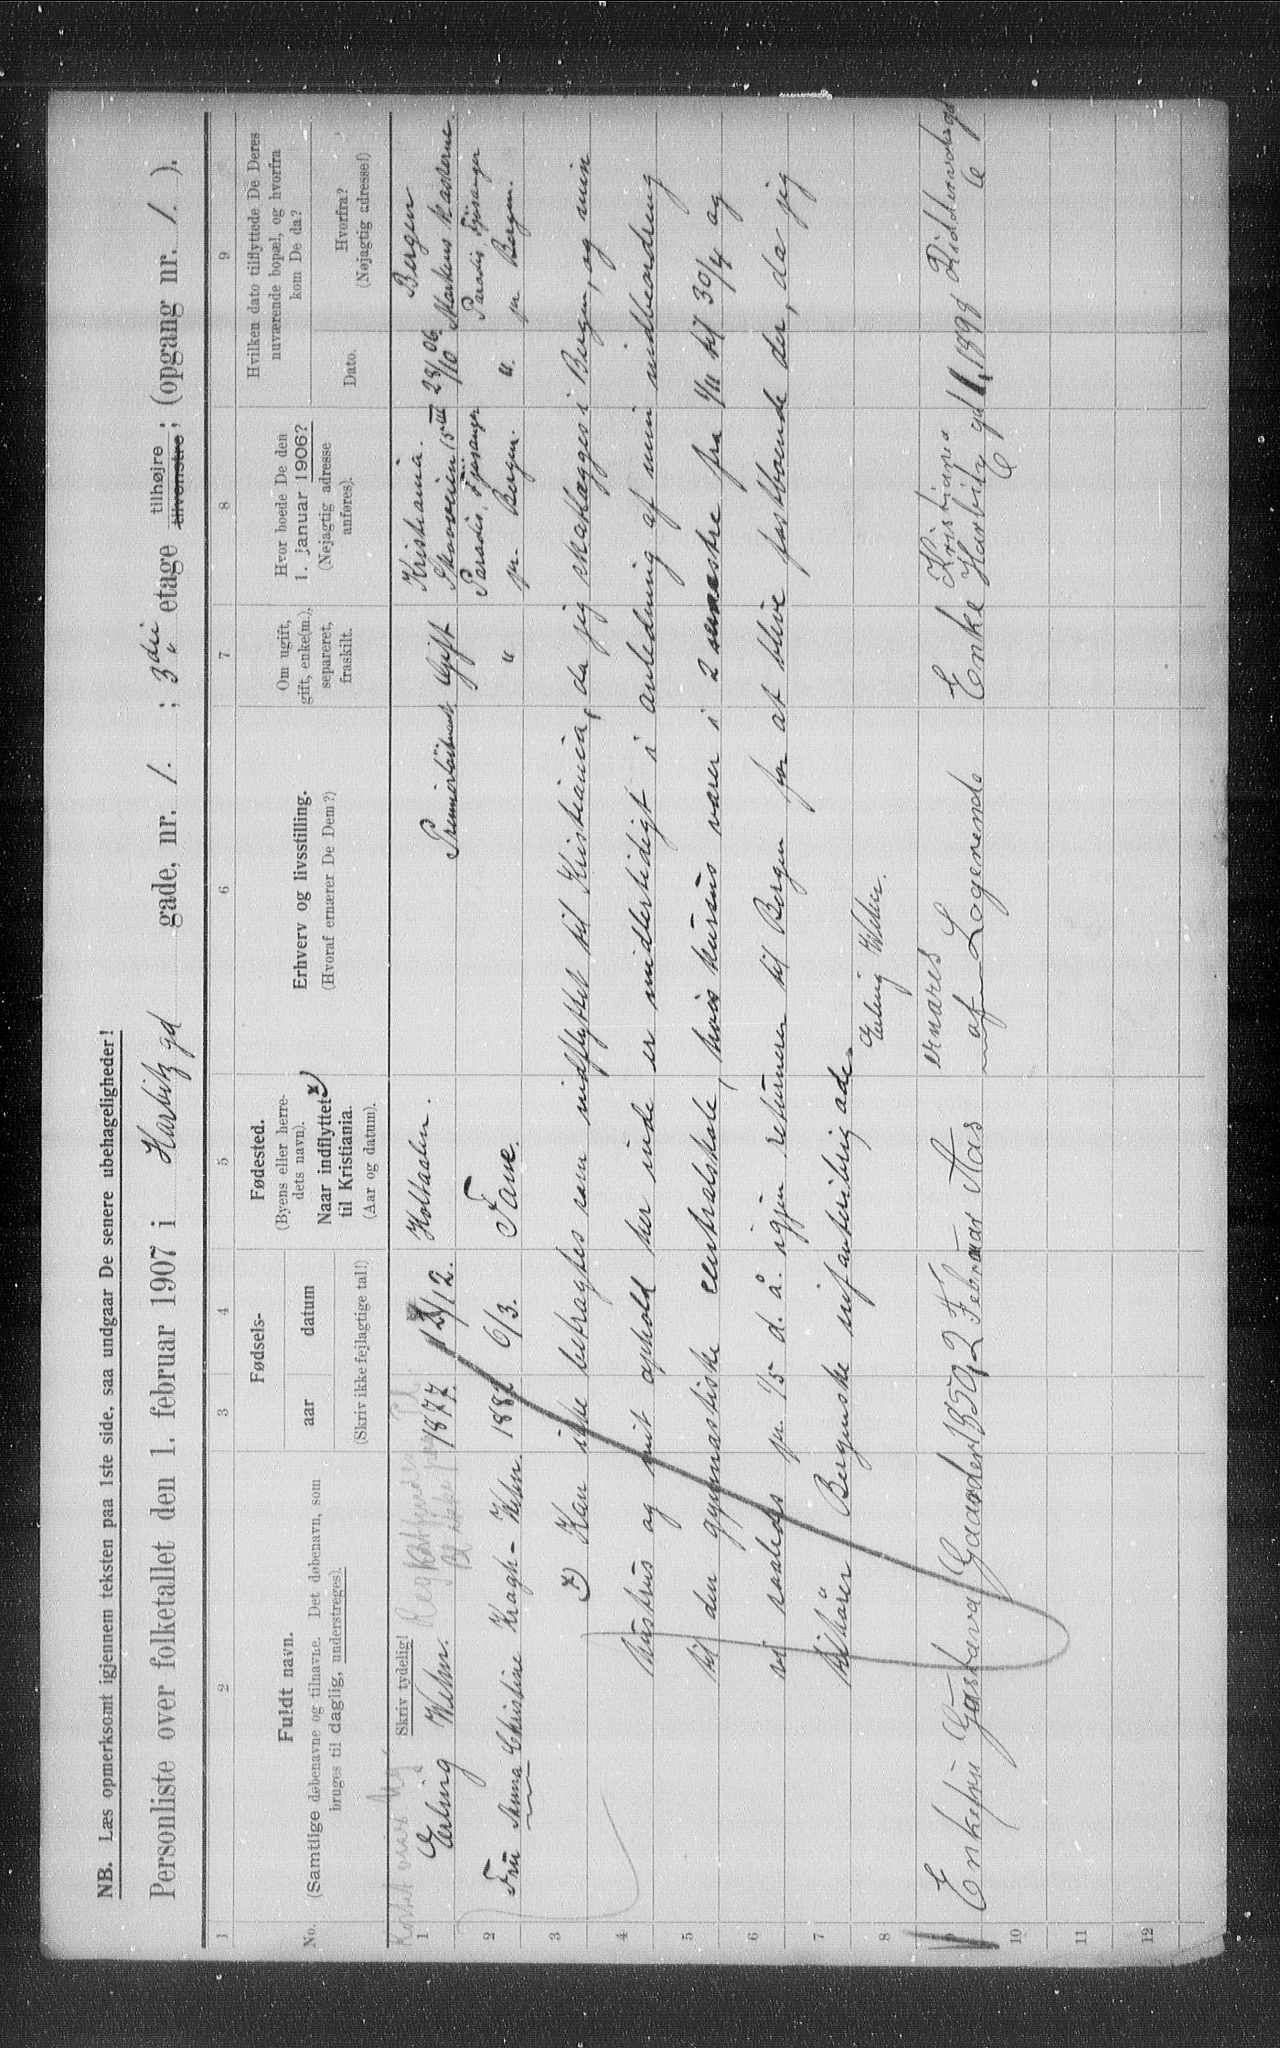 NB. Læs opmerksomt igjennem teksten paa 1ste side, saa undgaar De senere ubehageligheder!
Personliste over folketallet den 1. februar 1907 i Harbitz gd gade, nr. 1. ; 3die etage tilhøjre tilvenstre ; (opgang nr. 1. ).
1 2 3 4 5 6 7 8 9
No.
Fuldt navn.
(Samtlige døbenavne og tilnavne. Det døbenavn, som
bruges til daglig, understreges).
Fødsels-
aar datum
(Skriv ikke fejlagtige tal!)
Fødested.
(Byens eller herre-
dets navn).
Naar indflyttet x)
til Kristiania.
(Aar og datum).
Erhverv og livsstilling.
(Hvoraf ernærer De Dem?)
Om ugift,
gift, enke(m.),
separeret,
fraskilt.
Hvor boede De den
1. januar 1906?
(Nøjagtig adresse
anføres).
Hvilken dato tilflyttede De Deres
nuværende bopæl, og hvorfra
kom De da?
Dato.
Hvorfra?
(Nøjagtig adresse!)
Skriv tydelig!
1 Erling Wehn. 1877. 12/12. Holtaalen. Premierløitnant Gift Kristiania. Skovveien 15 III 28/10 06. Bergen Markens kaserne.
2 Fru Anna Christine Kragh-Wehn. 188 6/3. Fane. " Paradis, Fjøsanger pr. Bergen. ". Paradis, Fjøsanger pr Bergen.
3 x) Kan ikke betragtes som indflyttet til Kristiania, da jeg skatlægges i Bergen, og min
4 hustrus og mit ophold her inde er midlertidigt i anledning af min indbeordring
5 til den gymnastiske centralskole, hvis kursus varer i 2 semestre fra 1/11 til 30/4 og
6 vi saaledes pr. 1/5 d. å. igjen returnerer til Bergen for at blive fastboende der, da jeg
7 tilhører Bergenske infanteribrigade.
8 Erling Wehn.
9 Enkefru Gustava Gaarder 1850 2 Februar Aas ernæres af Logerende Enke Kristiania Harbitz gd 1 1898 Riddervolsgd
10
11
12